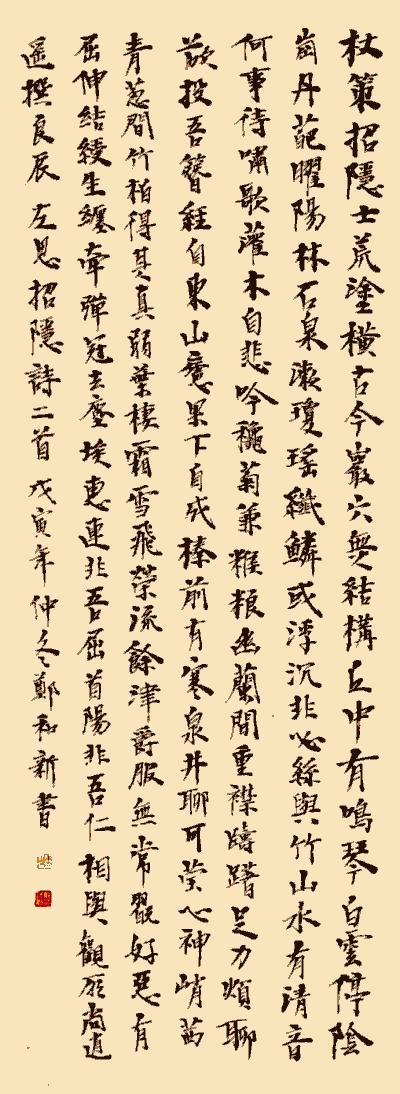 杖策招隱士荒塗橫古今巖穴無結構丘中有鳴琴白雲停陰
崗丹葩曜陽林石泉漱瓊瑤纖鱗或浮沉非必絲與竹山水有清音
何事待嘯歌灌木自悲吟穐菊兼糇粮幽蘭間重襟躊躇足力煩聊
欲投吾簪經自東山廬果下自成榛前有寒泉井聊可瑩心神峭茜
青葱間竹柏得其真弱葉棲霜雪飛榮流餘津爵服無常翫好惡有
屈伸結綬生纏牽彈冠去塵埃惠連非吾屈首陽非吾仁相與觀所尚逍
遥撰良辰左思招隱詩二首戊寅年仲冬鄭和新書